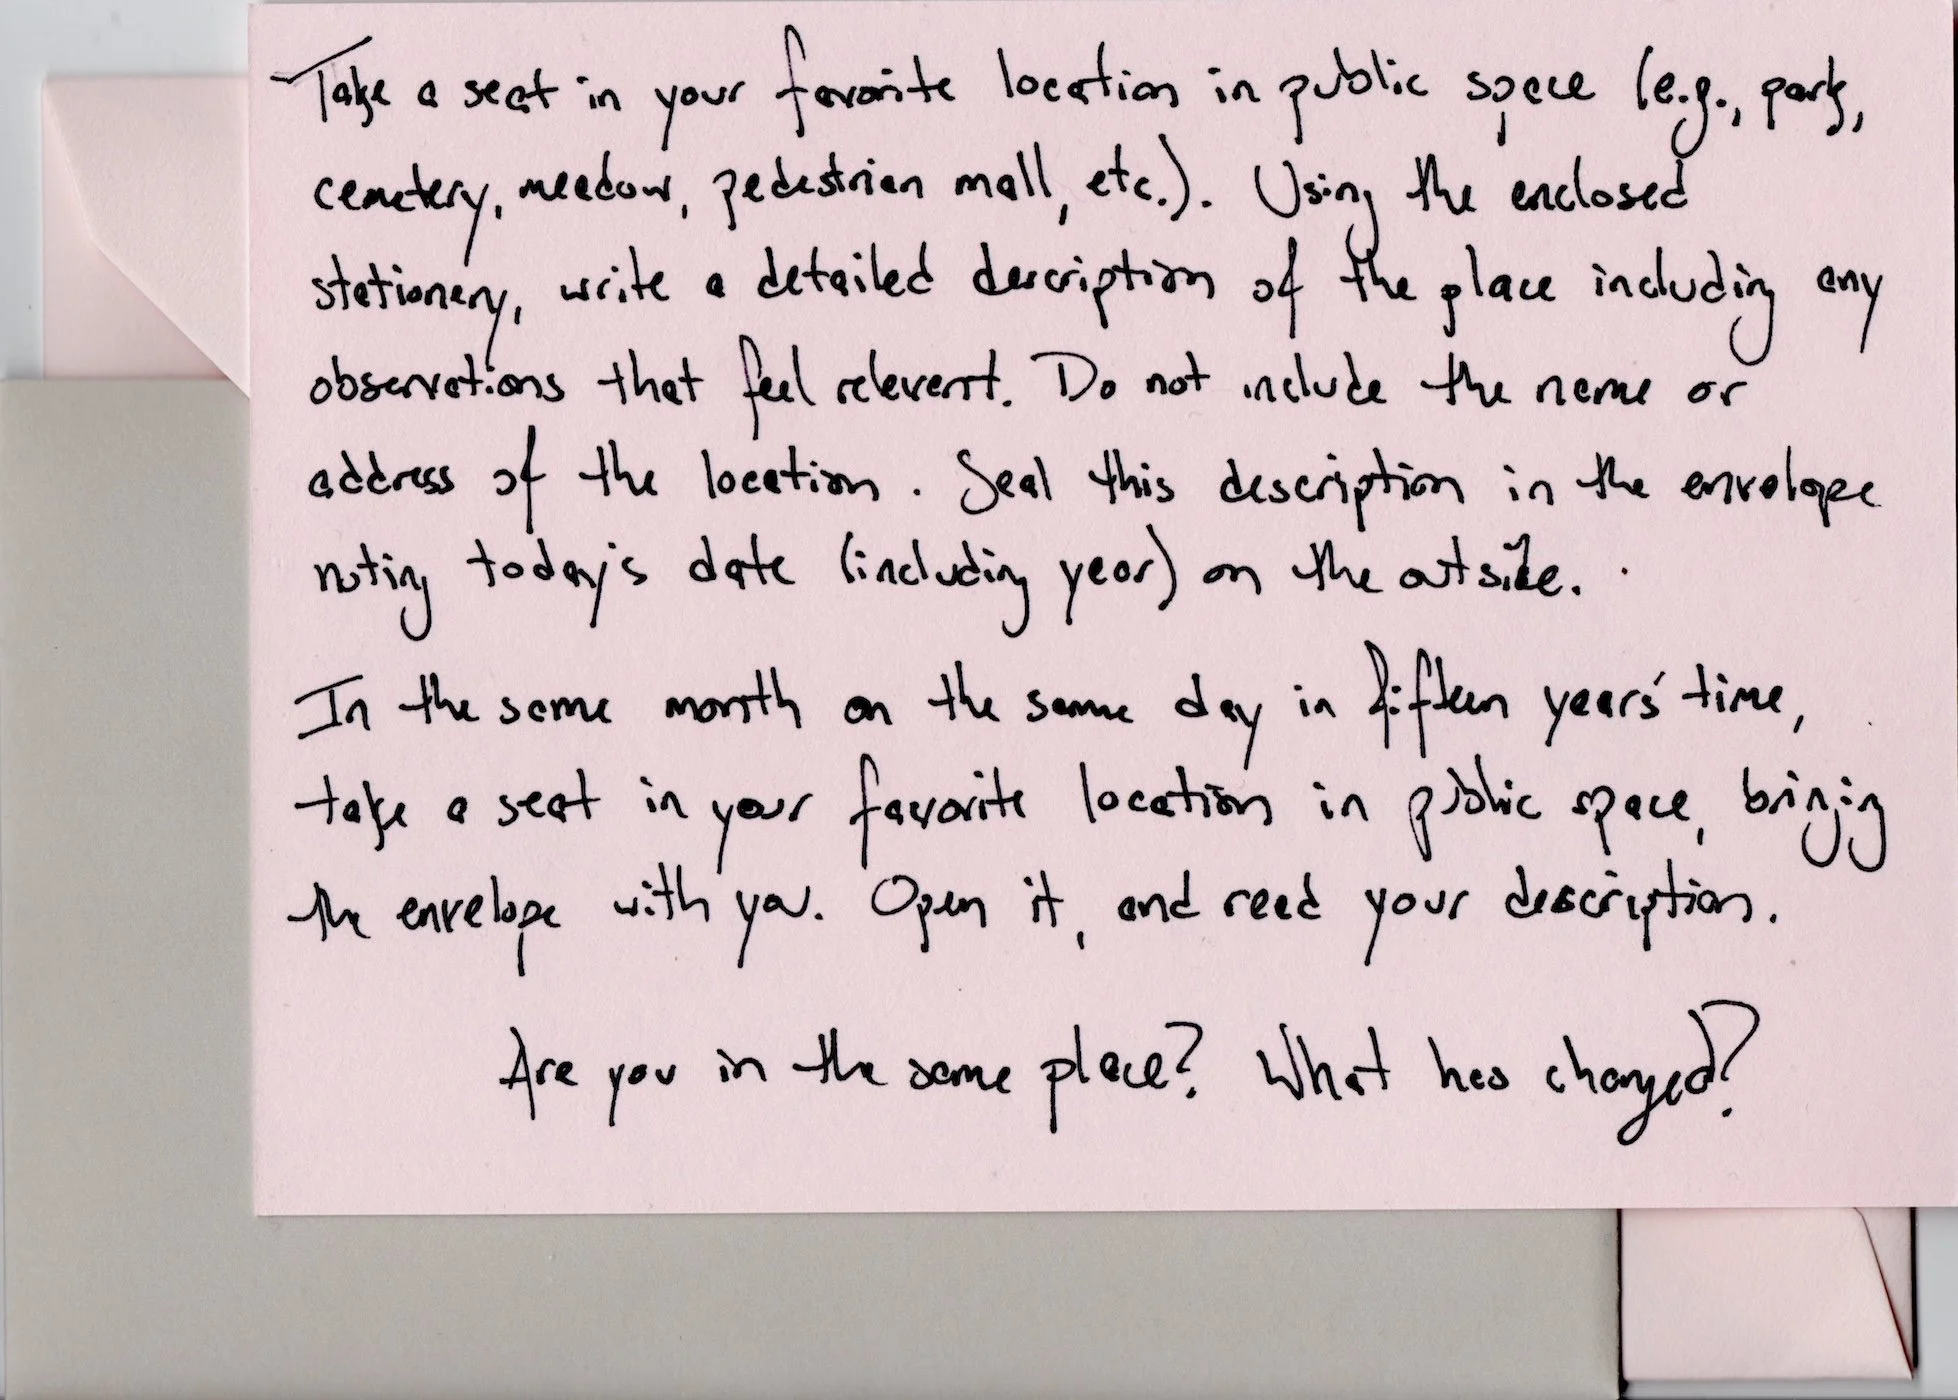 Take a seat in your favorite location in public space (e.g., park,
cemetery, meadow, pedestrian mall, etc.). Using the enclosed
stationery, write a detailed description of the place including any
observations that feel relevant. Do not include the name or
address of the location. Seal this description in the envelope
noting today's date (including year) on the outside.
In the same month on the same day in fifteen years' time,
take a seat in your favorite location in public space, bringing
the envelope with you. Open it, and read your description.
Are you in the same place? What has changed?